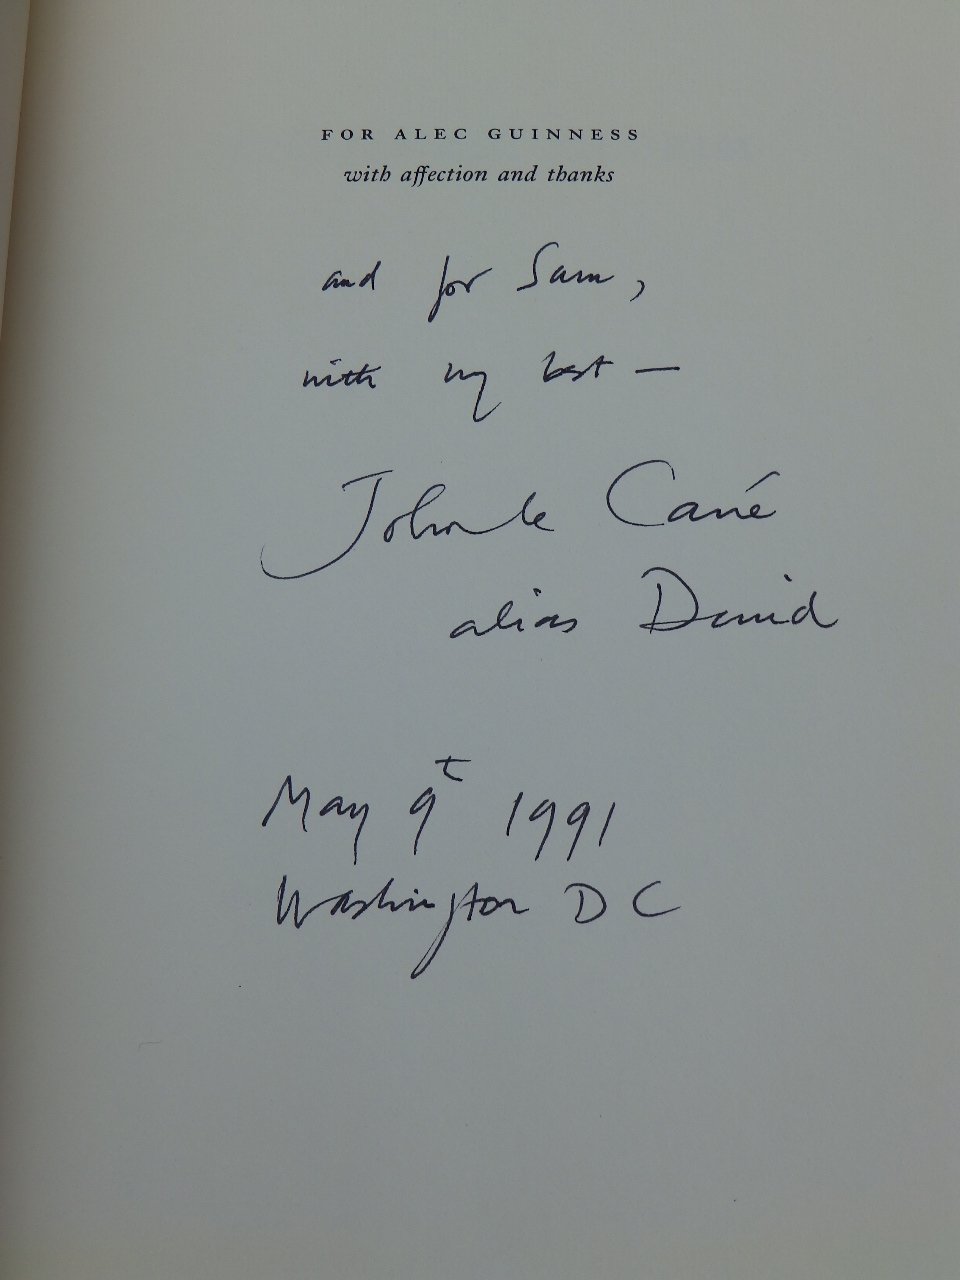 FOR ALEC GUINNESS
with affection and thanks
and for Sam,
with my best —
John le Carré
alias David
May 9t 1991
Washington DC